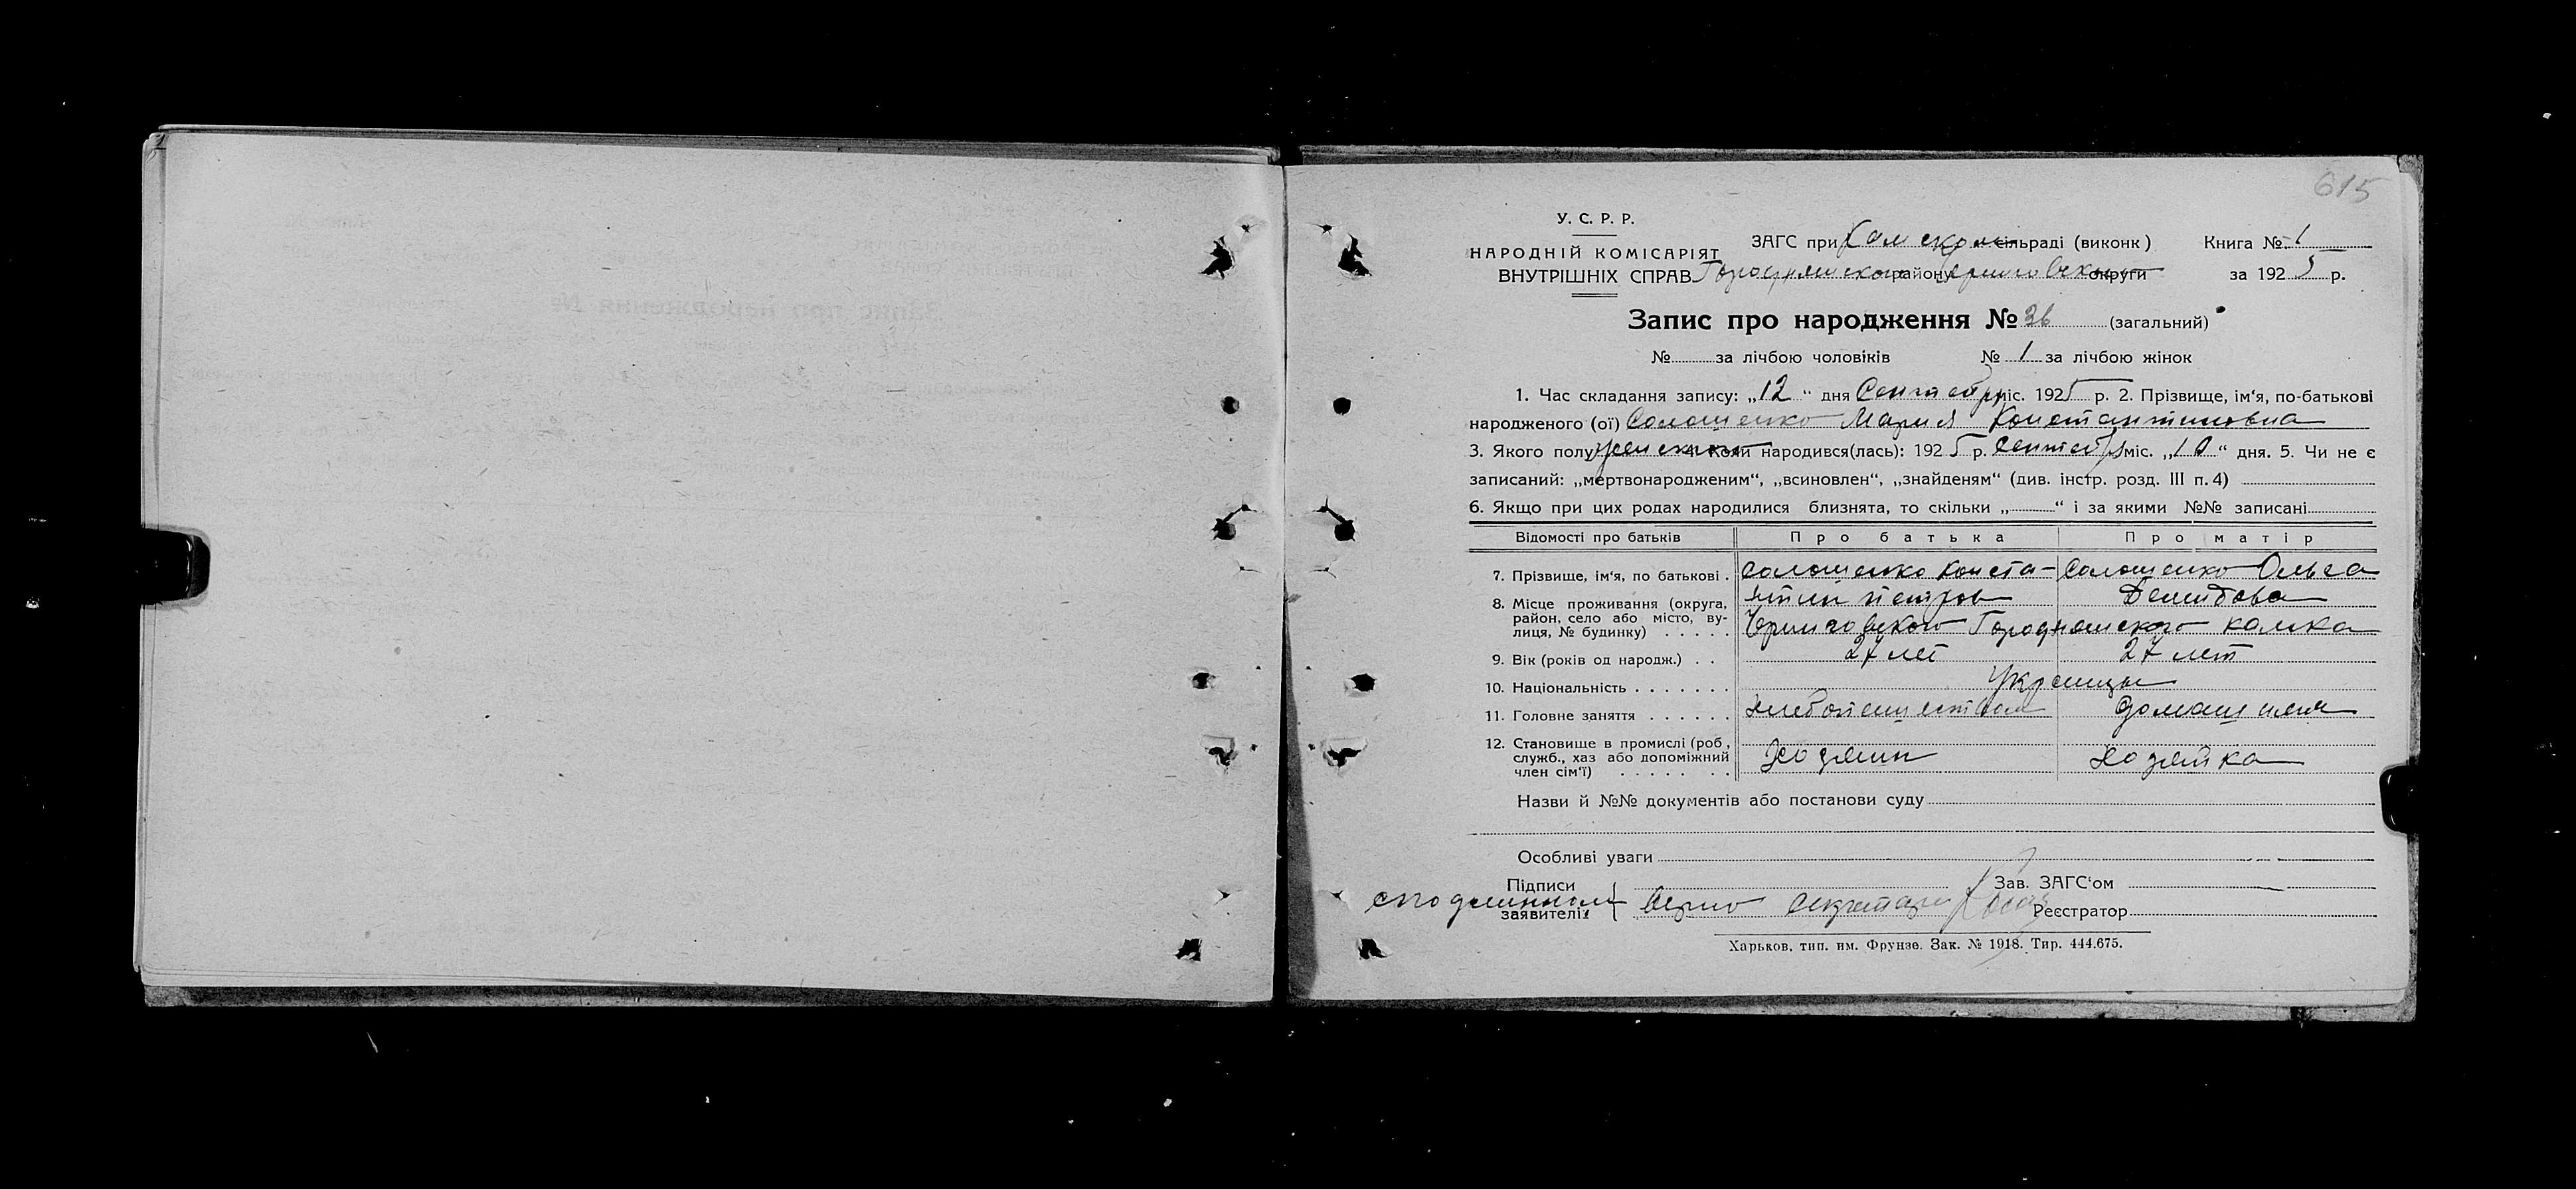 615
У. С. Р. Р.
НАРОДНІЙ КОМІСАРІЯТ
ВНУТРІШНІХ СПРАВ
ЗАГС при сільраді (виконк) Книга № 1
Городнянского району Черниговской округи за 1925 р.
Запис про народження № 36 (загальний)
№ за лічбою чоловіків № 1 за лічбою жінок
1. Час складання запису: „12“ дня Сентябр міс. 1925 р. 2. Прізвище, ім‘я, по-батькові
народженого (ої) Солошенко Мария Константиновна
3. Якого полу женского 4. Коли народився(лась): 1925 р. Сентябр міс. „10“ дня. 5. Чи не є
записаний: „мертвонародженим“, „всиновлен“, „знайденям“ (див. інстр. розд. III п. 4)
6. Якщо при цих родах народилися близнята, то скільки „ “ і за якими №№ записані
Відомості про батьків Про батька Про матір
7. Прізвище, ім‘я, по батькові . Солошенко Конста- Солошенко Ольга
нтин петров Демидова
8. Місце проживання (округа,
район, село або місто, ву-
лиця, № будинку) . . . . . Черниговской Городнянского камка
9. Вік (років од народж.) . . 27 лет 27 лет
10. Національність . . . . . . . Украинцы
11. Головне заняття . . . . . . хлебопашеством домашняя
12. Становище в промислі (роб.,
служб., хаз або допоміжний
член сім‘ї) . . . . . . . Хозяин хозяйка
Назви й №№ документів або постанови суду
Особливі уваги
Підписи Зав. ЗАГС‘ом
с подлинным верно Секретарь
заявителів Реєстратор
Харьков, тип. им. Фрунзе. Зак. № 1918. Тир. 444.675.